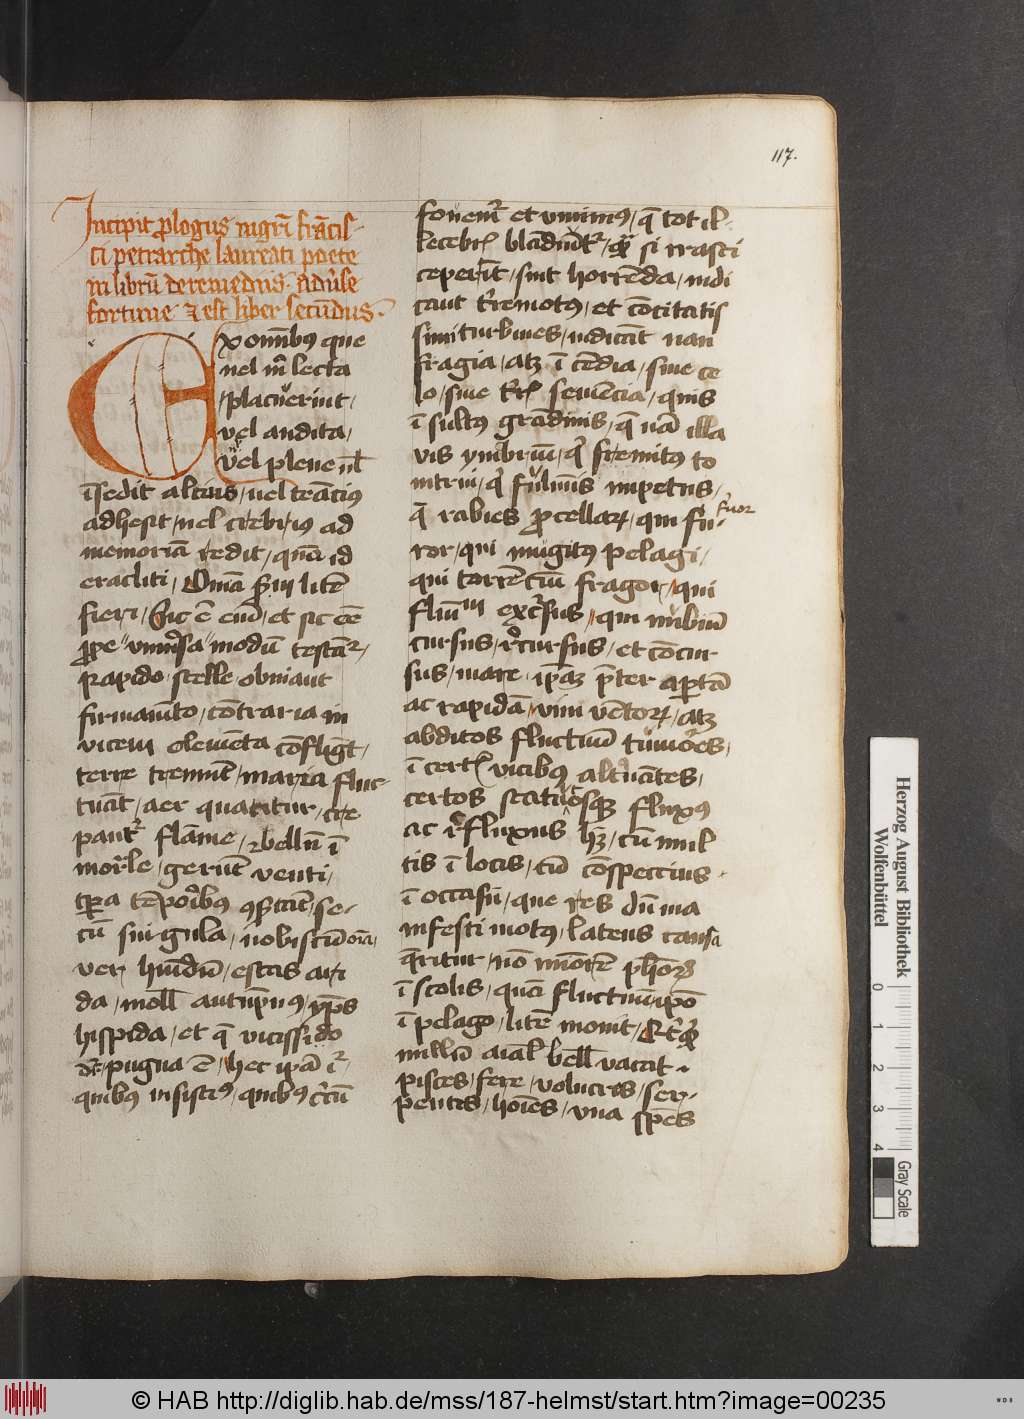 117.
Incipit plogus mgri francis-
ci petrarche laureati poete
in librū de remediis adūse
fortune ⁊ est liber secūdus.
Ex omībus que
vel m̄ lecta
placuerint,
vel audita,
vel plene nl
īsedit altius, uel tenacius
adhesit, uel crebrius ad
memoriā redit, quā id
eracliti, Omā scdm litē
fieri, Sic ē eni, et sic eē
prope vniūsa modū testant̄,
rapido stelle obuiant
firmamēto, cōtraria in
vicem elemēta cōfligūt,
terre tremūt, maria fluc-
tuāt, aer quatitur, cre
pant flāme, ⁊ bellū ī
mortale, gerūt venti,
tpra tēporibus ꝯcertāt, se-
cū singula, nobiscū oīa,
ver humidū, estas ari
da, mollis autūpnus, yps
hispida, et q̄ vicissitudo
dr, pugna ē, hec ipā igr̄
quibus insistimus, quibus circū
fouemr et viuimus, q̄ tot il-
lecebris blādiūtr, quā si irasci
ceperīt, sint horrēda, indi
cant t̄remotus, et cōcitatis
simi turbines, indicāt nau
fragia, atqꝫ īcēdia, siue ce
lo, siue t̄ris seuiēcia, quis
īsultus grādinis, q̄ nā illa
vis ymbrium, qs fremitus to
nitrui, qs fulminis impetus,
q̄ rabies procellaꝝ, qui fu- furor
ror, qui mugitus pelagi,
qui torrētiū fragor, qui
fluuium excursus, qui nubium
cursus, recursus, et cōcur
sus, mare ipm preter aptā
ac rapidā, vim vētoꝝ, atqꝫ
abditos fluctuū tumores,
īcertis vicibus alternātes,
certos statutosqꝫ fluxus
ac refluxus hꝫ, cū mul
tis ī locis, tū cōspectius
ī occasu, que res dū ma
nifesti motus, latens causa
queritur, nō minorē phorꝫ
ī scolis, quā fluctuū ipo
ī pelago, litē mouit,
nullū aial bello vacat,
pisces, fere, volucres, ser-
pentes, hoīes, vna spēs
Herzog August Bibliothek
Wolfenbüttel
0 1 2 3 4
Gray Scale
© HAB http://diglib.hab.de/mss/187-helmst/start.htm?image=00235